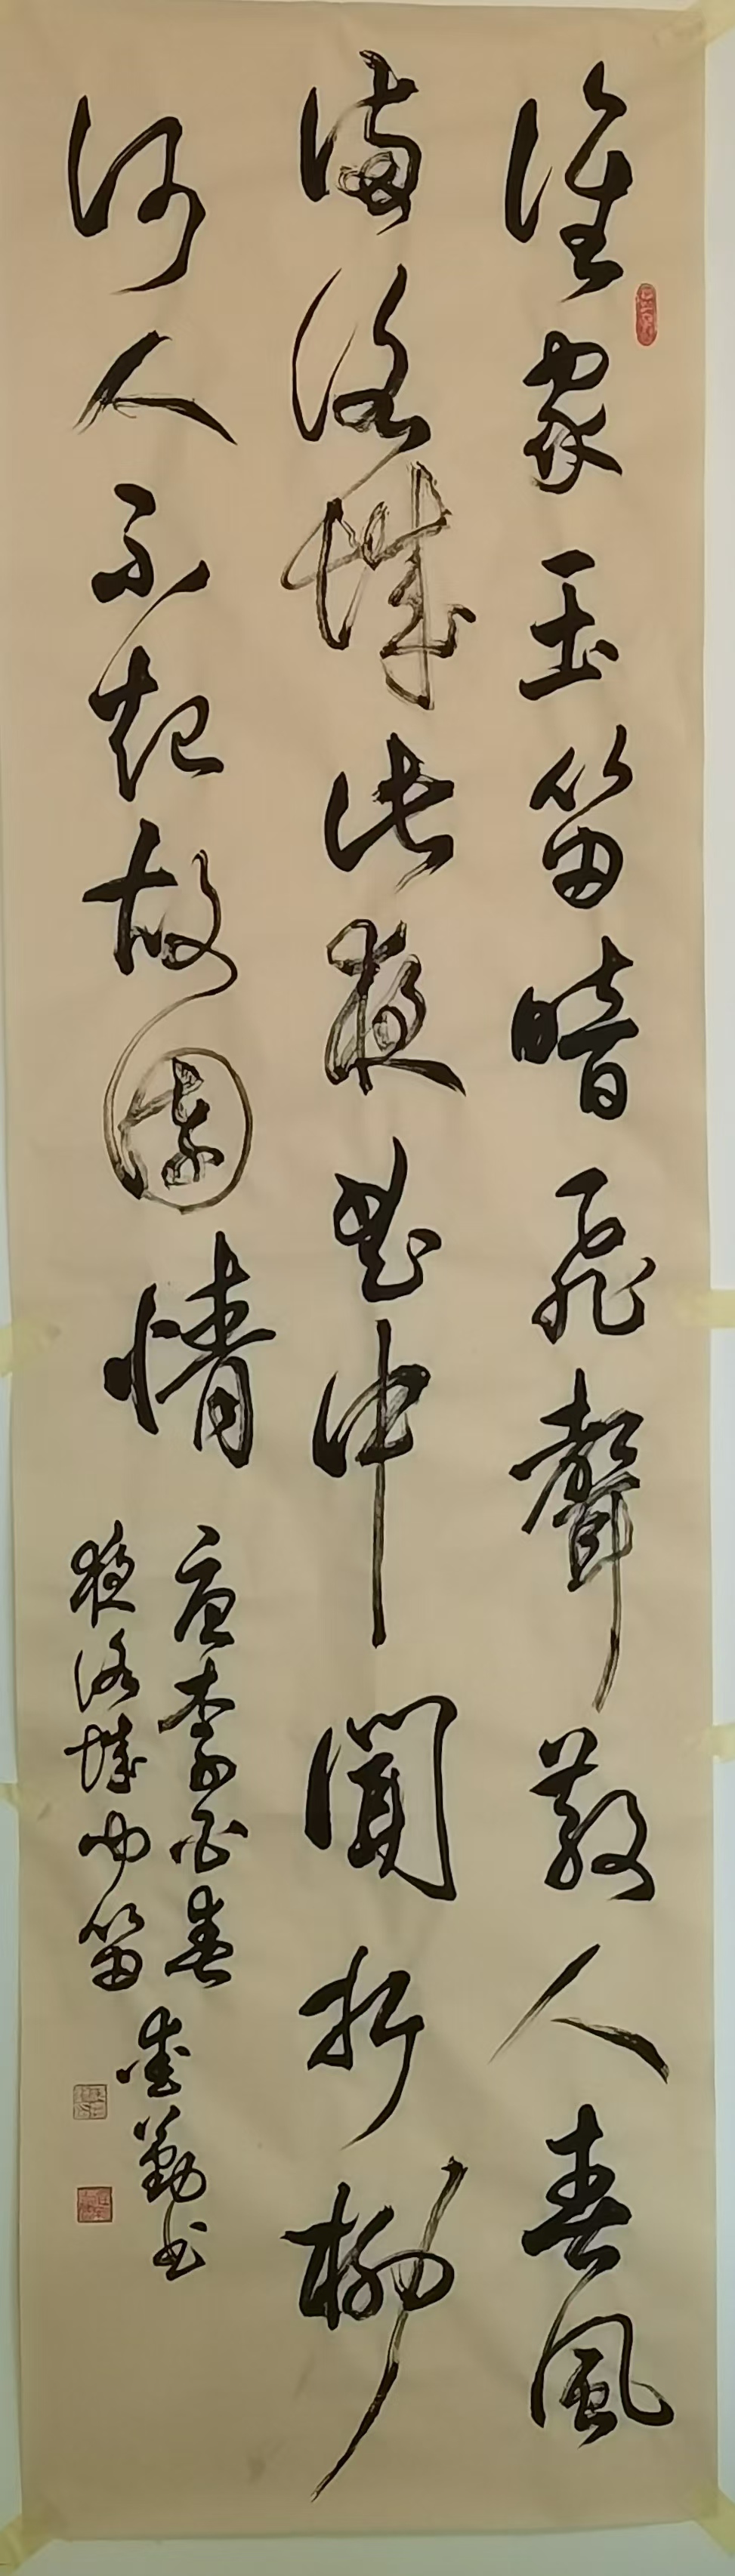 誰家玉笛暗飛聲散入春風
滿洛城此夜曲中聞折柳
何人不起故園情
唐李白春
夜洛城闻笛
勤书